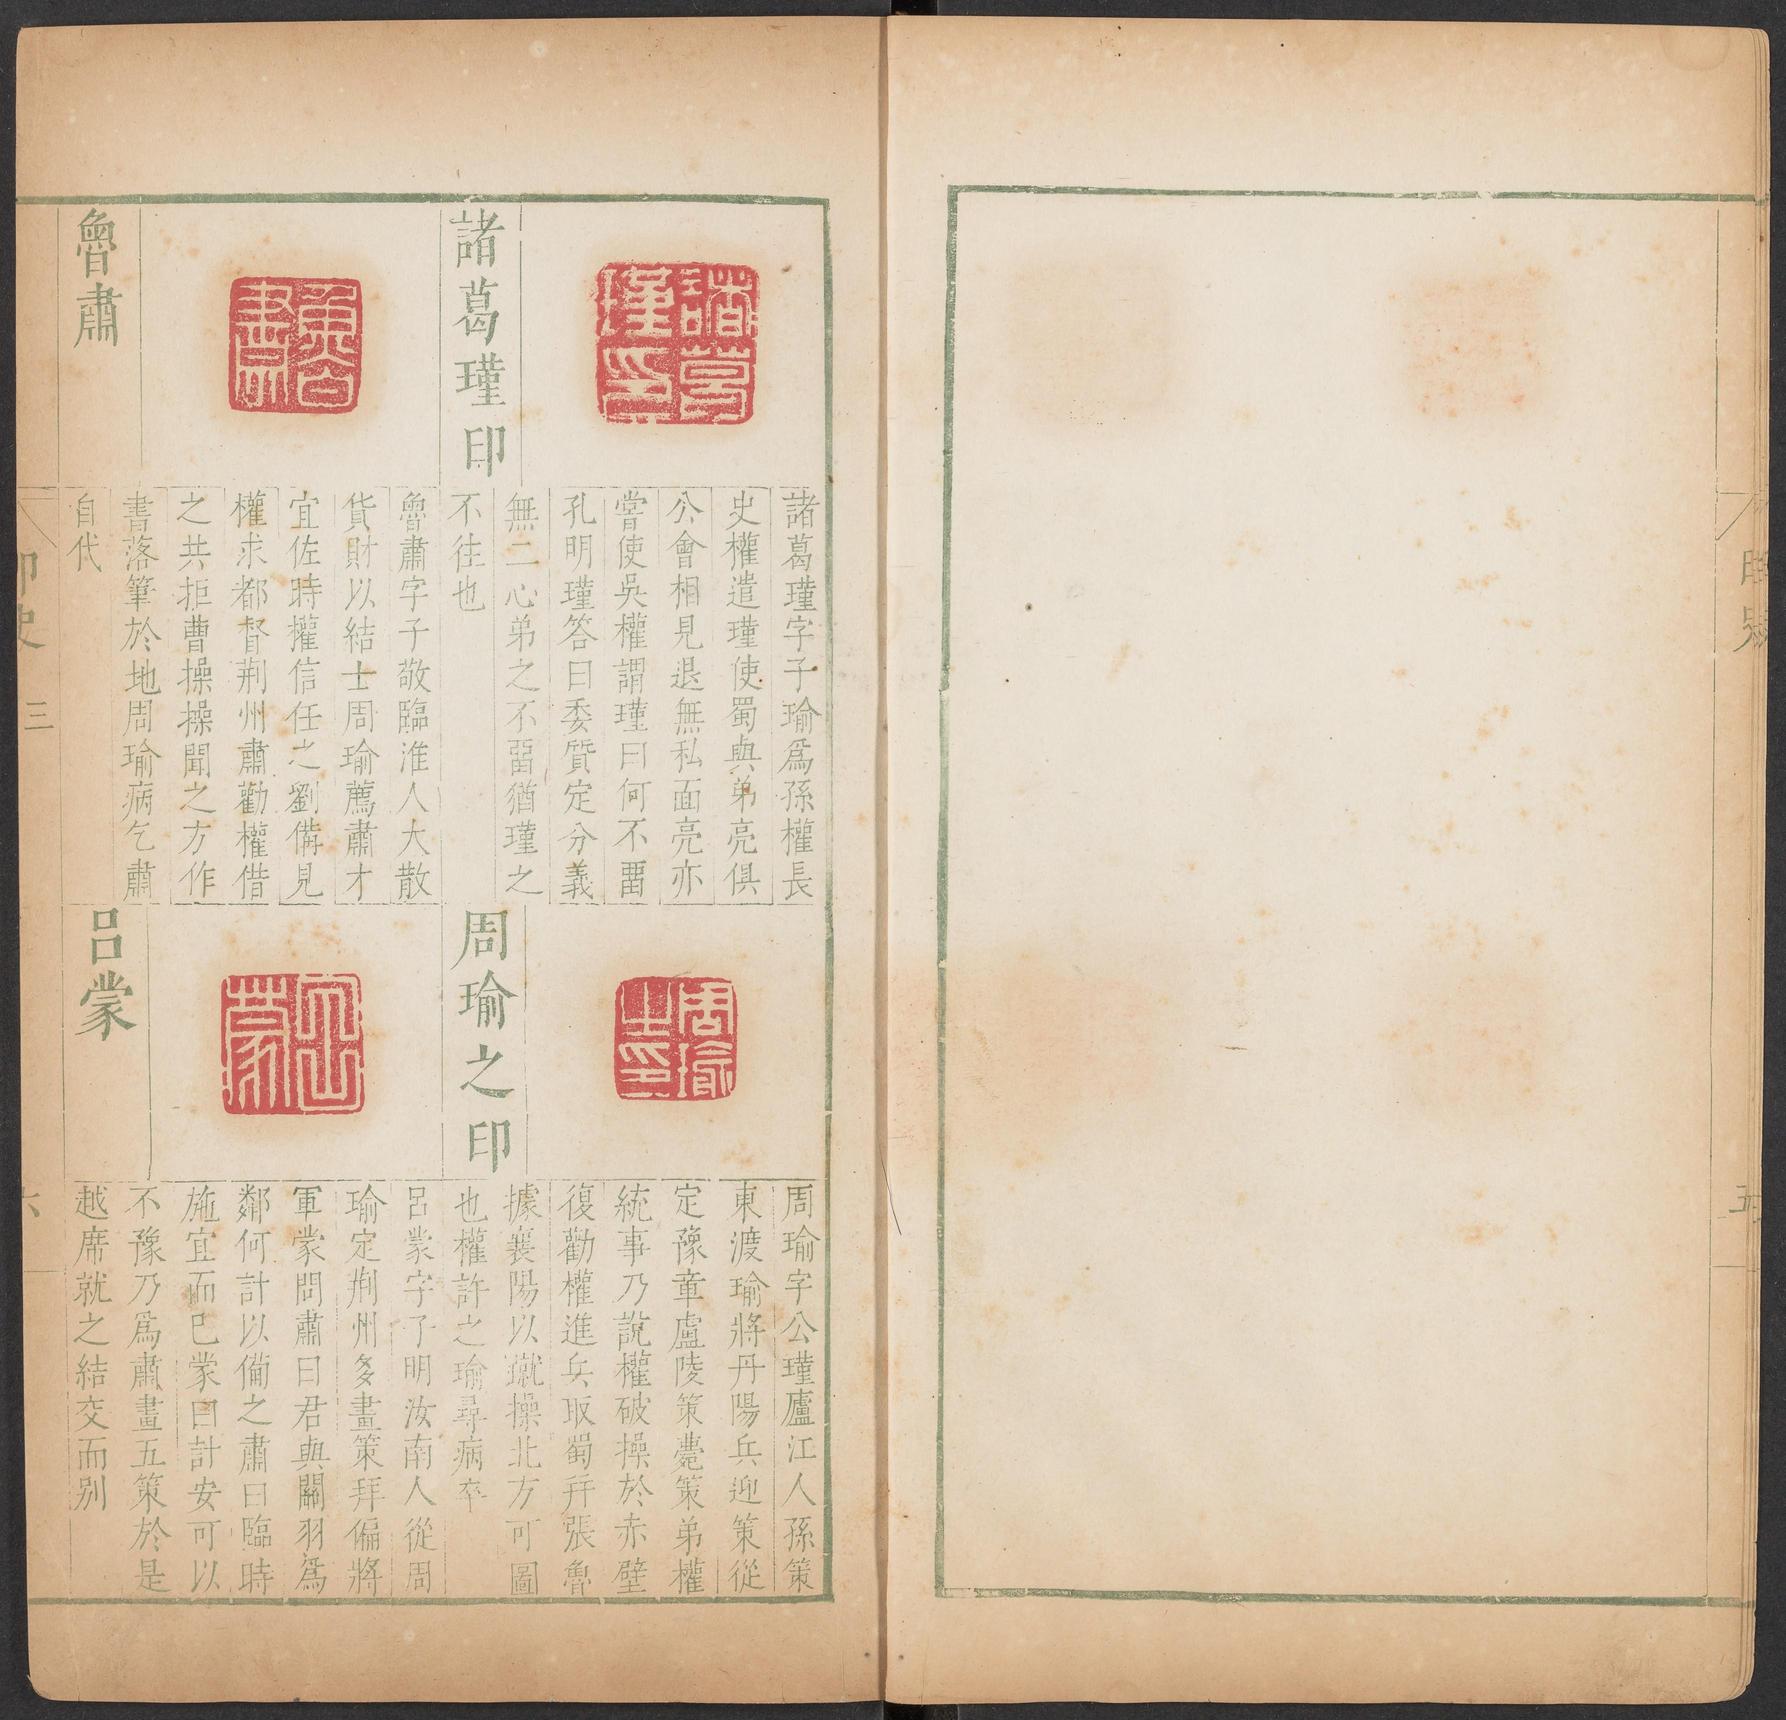 諸葛瑾印
諸葛瑾字子瑜爲孫權長
史權遣瑾使蜀與弟亮俱
公會相見退無私面亮亦
嘗使吳權謂瑾曰何不畱
孔明瑾答曰委質定分義
無二心弟之不畱猶瑾之
不往也
魯肅
魯肅字子敬臨淮人大散
貨財以結士周瑜薦肅才
宜佐時權信任之劉備見
權求都督荆州肅勸權借
之共拒曹操操聞之方作
書落筆於地周瑜病乞肅
自代
周瑜之印
周瑜字公瑾廬江人孫策
東渡瑜將丹陽兵迎策從
定豫章盧陵策薨策弟權
統事乃說權破操於赤壁
復勸權進兵取蜀幷張魯
據襄陽以蹴操北方可圖
也權許之瑜尋病卒
呂蒙
呂蒙字子明汝南人從周
瑜定荆州多畫策拜偏將
軍蒙問肅曰君與關羽爲
鄰何計以備之肅曰臨時
施宜而已蒙曰計安可以
不豫乃爲肅畫五策於是
越席就之結交而別
諸葛瑾印
魯肅
周瑜之印
呂蒙
印史
三
六
五